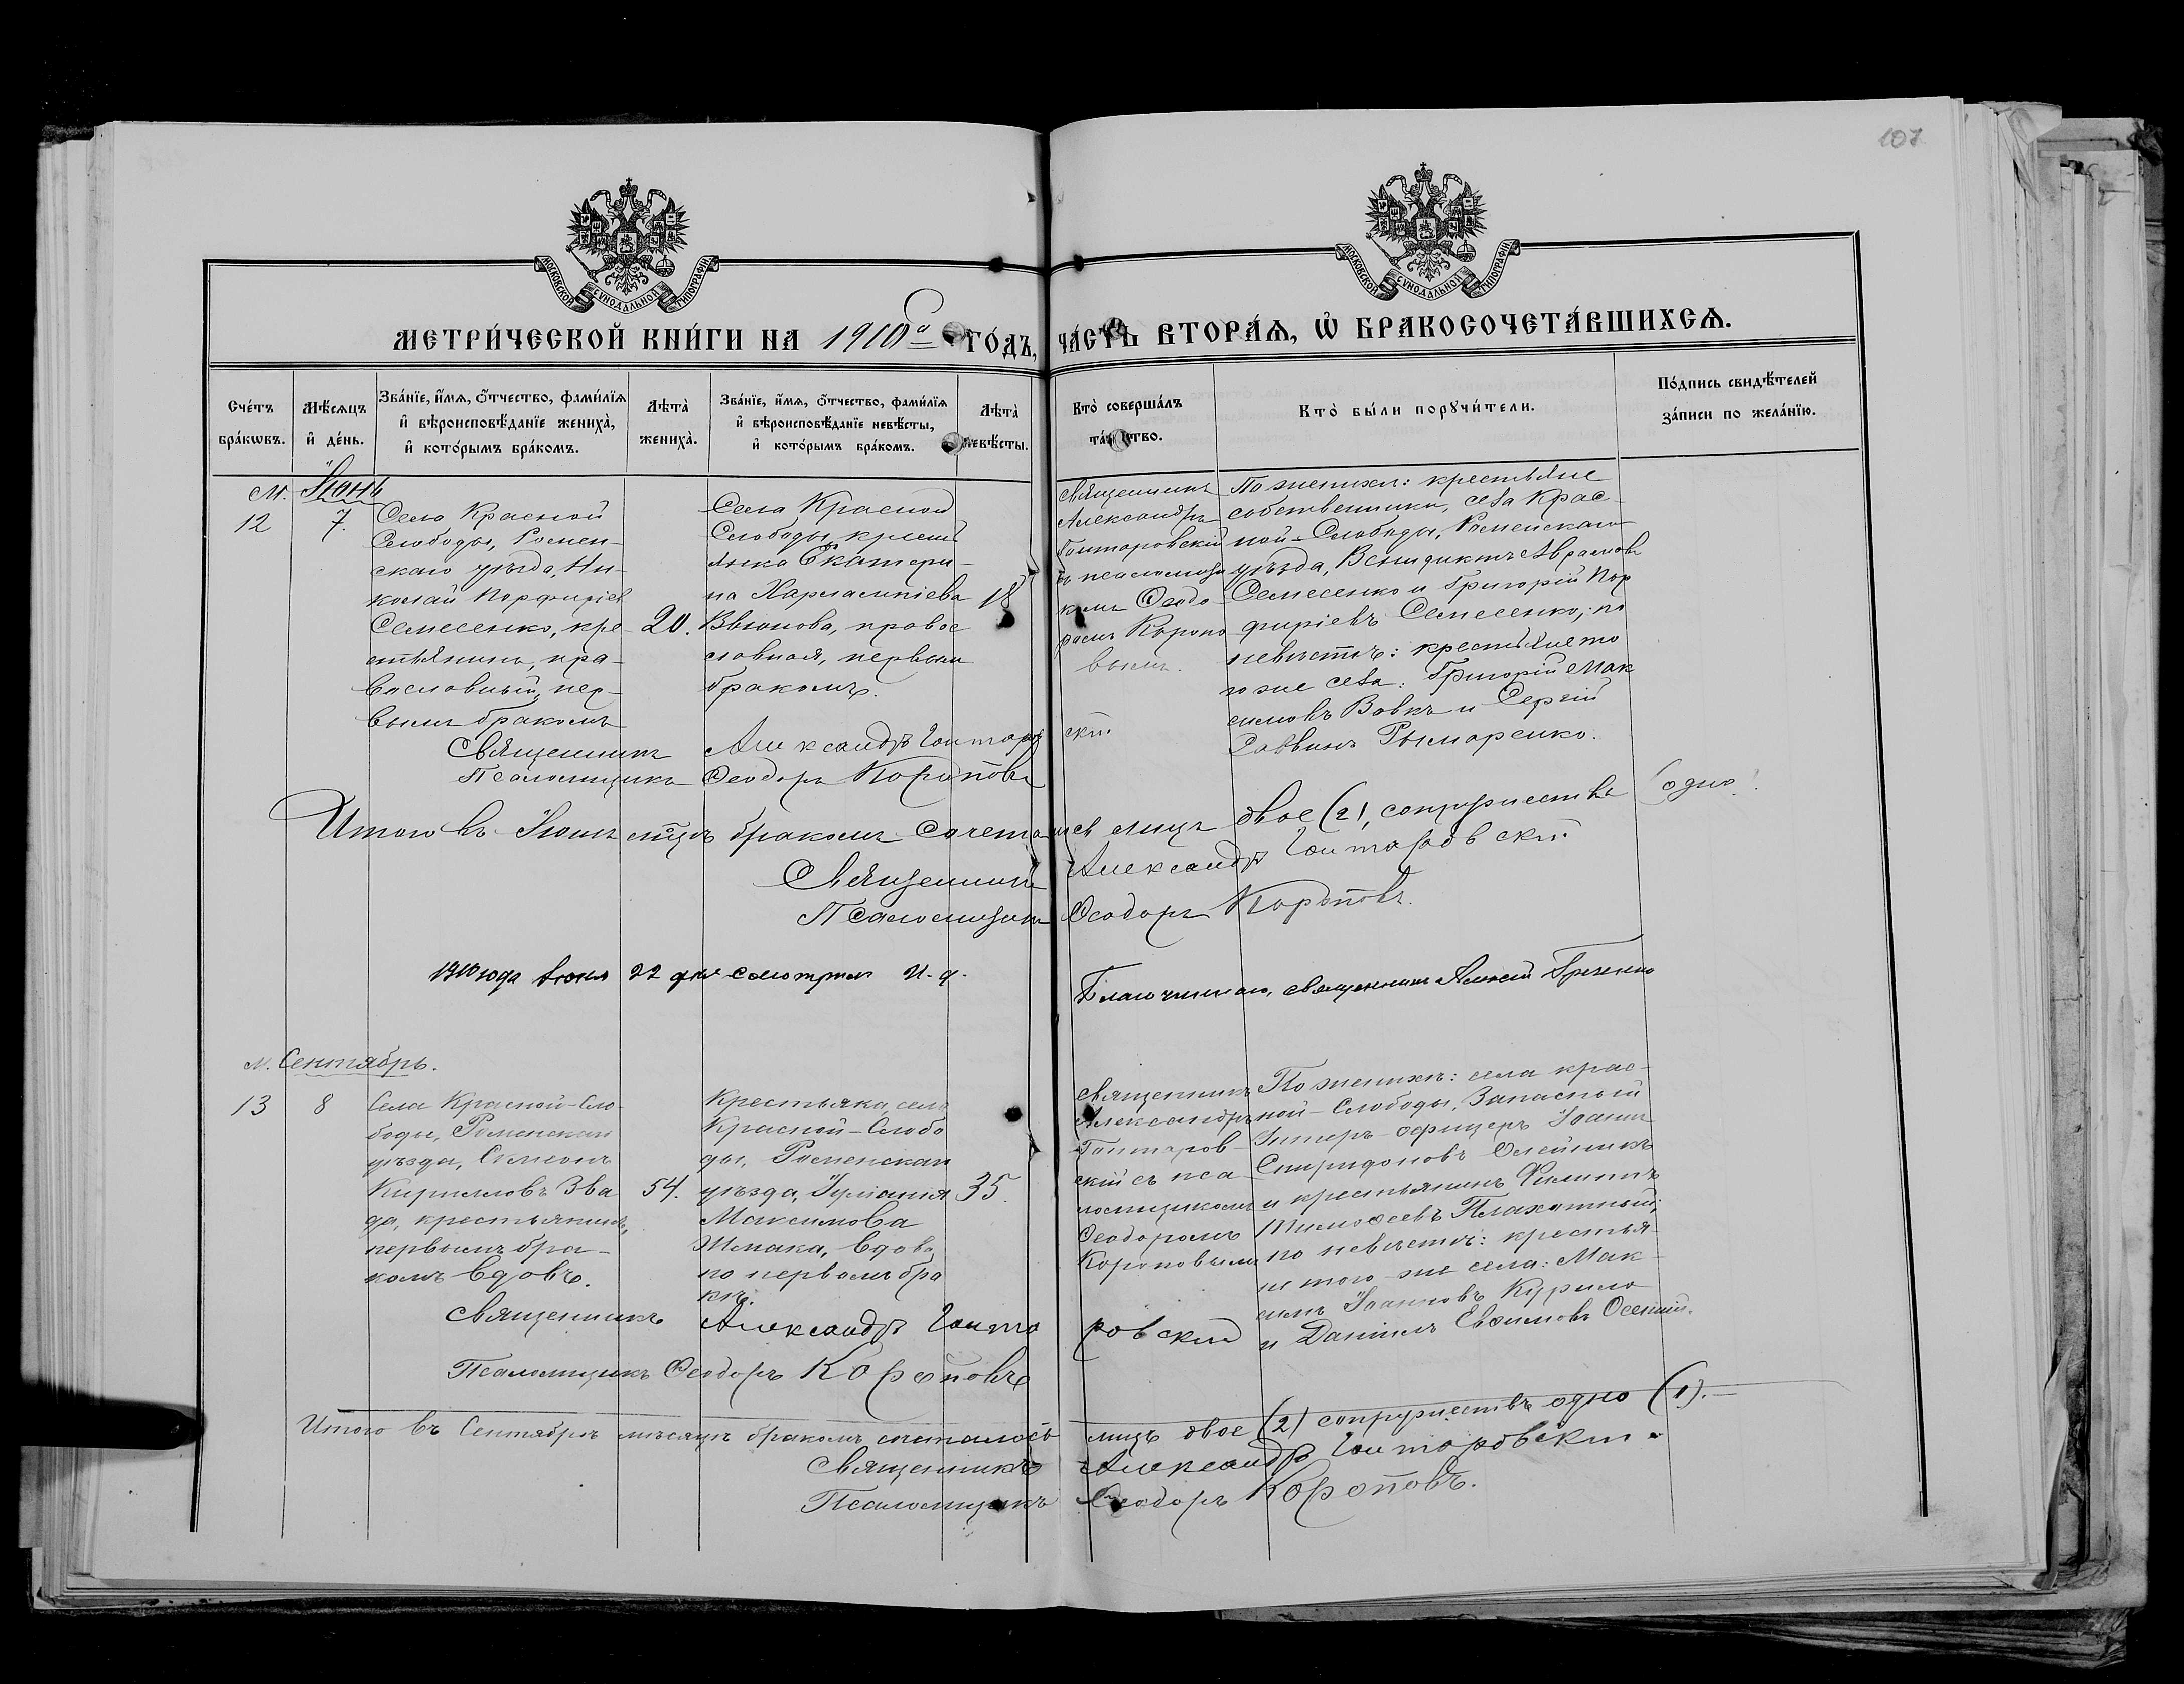 107
МОСКОВСКОЙ СѴНОДАЛЬНОЙ ТИПОГРАФІИ
МОСКОВСКОЙ СѴНОДАЛЬНОЙ ТИПОГРАФІИ
МЕТРИ́ЧЕСКОЙ КНИ́ГИ НА 1910 ГО́ДЪ, ЧА́СТЬ ВТОРА́Ѧ, Ѽ БРАКОСОЧЕТА́ВШИХСѦ.
Сче́тъ бра́кѡвъ.
Мѣ́сяцъ и҆ де́нь.
Зва́нїе, и҆́мѧ, ѻ҆́тчество, фами́лїѧ и҆ вѣроисповѣ́данїе жениха̀, и҆ кото́рымъ бра́комъ.
Лѣта̀ жениха̀.
Зва́нїе, и҆́мѧ, ѻ҆́тчество, фами́лїѧ и҆ вѣроисповѣ́данїе невѣ́сты, и҆ кото́рымъ бра́комъ.
Лѣта̀ невѣ́сты.
Кто̀ соверша́лъ та́инство.
Кто̀ бы́ли порꙋчи́тели.
По́дпись свидѣ́телей за́писи по жела́нїю.
М. Іюнь
12
7.
Села Красной
Слободы, Ромен-
скаго уѣзда, Ни-
колай Порфиріев
Семесенко, кре-
стьянинъ, пра-
вославный, пер-
вымъ бракомъ
20.
Села Красной
Слободы кресть
янка Екатери-
на Харлампіева
Вьюнова, правос
славная, первымъ
бракомъ.
18
Священникъ
Александръ
Гонтаровскій
съ псаломщи
комъ Ѳеодо
ромъ Коропо
вымъ.
По женихѣ: крестьяне
собственники, села Крас-
ной-Слободы, Роменскаго
уѣзда, Венедиктъ Аврамовъ
Семесенко и Григорій Пор
фиріевъ Семесенко; по
невѣстѣ: крестьяне то
го же села: Григорій Мак
симовъ Вовкъ и Сергій
Саввинъ Рымаренко.
Священникъ Александръ Гонтаровскій
Псаломщикъ Ѳеодоръ Короповъ
Итого въ Іюнѣ мѣсяцѣ бракомъ сочеталось лицъ двое (2), супружества (одно).
Священникъ Александръ Гонтаровскій
Псаломщикъ Ѳеодоръ Короповъ.
1910 года Іюня 22 дня смотрѣлъ И. д.
Благочиннаго, священникъ Алексій
м. Сентябрь.
13
8
Села Красной-Сло-
боды, Роменскаго
уѣзда, Симеонъ
Кирилловъ Зва
да, крестьянинъ,
первымъ бра-
комъ вдовъ.
54.
Крестьянка, села
Красной-Слобо
ды, Роменскаго
уѣзда, Іуліанія
Максимова
Шпака, вдова
по первомъ бра
кѣ.
35.
Священникъ
Александръ
Гонтаров-
скій съ пса
ломщикомъ
Ѳеодоромъ
Короповымъ
По женихѣ: села Крас-
ной-Слободы, Запасной
Унтеръ-офицеръ Іоаннъ
Спиридоновъ Олейникъ
и крестьянинъ Филиппъ
Тимоѳеевъ Плахотный;
по невѣстѣ: крестья-
не того-же села: Мак-
симъ Іоанновъ Курило
и Даніилъ Евѳимовъ Осенній.
Священникъ Александръ Гонтаровскій
Псаломщикъ Ѳеодоръ Короповъ
Итого въ Сентябрѣ мѣсяцѣ бракомъ сочеталось лицъ двое (2) супружествъ одно (1).
Священникъ Александръ Гонтаровскій
Псаломщикъ Ѳеодоръ Короповъ.